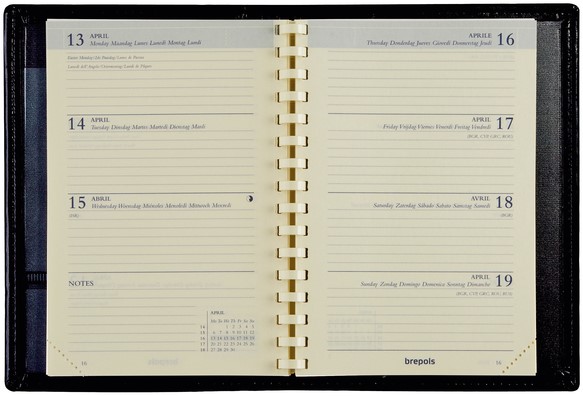 13 APRIL
Monday Maandag Lunes Lunedì Montag Lundi
14 APRIL
Tuesday Dinsdag Martes Martedì Dienstag Mardi
15 ABRIL
Wednesday Woensdag Miércoles Mercoledì Mittwoch Mercredi
NOTES
APRIL
Mo Tu We Th Fr Sa Su
14 1 2 3 4 5
15 6 7 8 9 10 11 12
16 13 14 15 16 17 18 19
17 20 21 22 23 24 25 26
18 27 28 29 30
16
APRILE 16
Thursday Donderdag Jueves Giovedì Donnerstag Jeudi
APRIL 17
Friday Vrijdag Viernes Venerdì Freitag Vendredi
AVRIL 18
Saturday Zaterdag Sábado Sabato Samstag Samedi
APRIL 19
Sunday Zondag Domingo Domenica Sonntag Dimanche
brepols
16